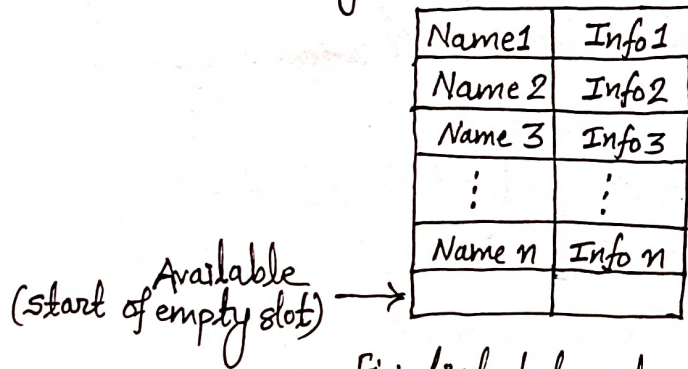 Name1 Info1
Name 2 Info2
Name 3 Info3
⋮ ⋮
Name n Info n
Available
(start of empty slot)